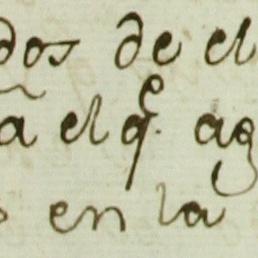 dos de el
a el qᵉ. ag
s en la